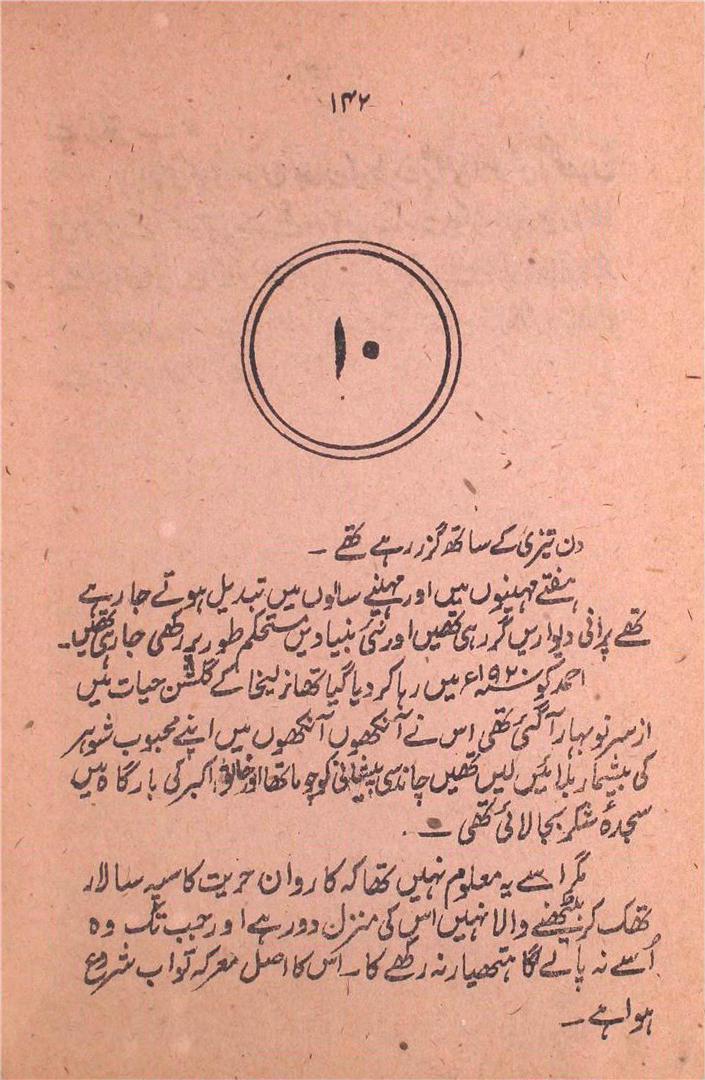 ۱۴۲
۱۰
دن تیزی کے ساتھ گزر رہے تھے ۔
ہفتے مہینوں میں اور مہینے سالوں میں تبدیل ہوتے جا رہے
تھے پرانی دیواریں گر رہی تھیں اور نئی بنیادیں مستحکم طور پر رکھی جا رہی تھیں۔
احمد کو ۱۹۲۰ء میں رہا کر دیا گیا تھا زلیخا کے گلشن حیات میں
از سر نو بہار آگئی تھی اس نے آنکھوں آنکھوں میں اپنے محبوب شوہر
کی بیشمار بلائیں لیں تھیں چاند سی پیشانی کو چوما تھا اور خالق اکبر کی بارگاہ میں
سجدۂ شکر بجا لائی تھی ۔
مگر اسے یہ معلوم نہیں تھا کہ کاروان حریت کا سپہ سالار
تھک کر بیٹھنے والا نہیں اس کی منزل دور ہے اور جب تک وہ
اُسے نہ پالے گا ہتھیار نہ رکھے گا۔ اس کا اصل معرکہ تو اب شروع
ہوا ہے ۔